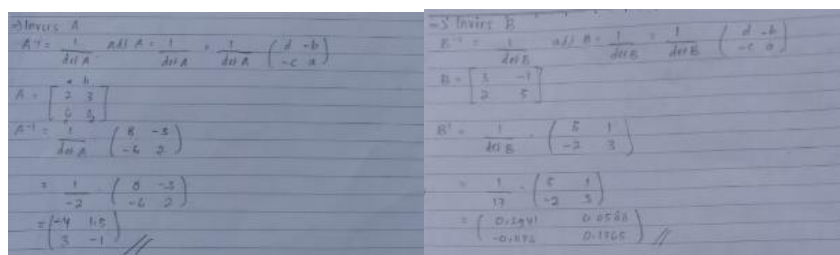 ⇒ Invers A
A⁻¹ = 1/det A adj A = 1/det A = 1/det A ( d -b
-c a )
a b
A = [ 2 3
6 8 ]
A⁻¹ = 1/det A ( 8 -3
-6 2 )
= 1/-2 · ( 8 -3
-6 2 )
= ( -4 1.5
3 -1 ) //
→ Invers B
B⁻¹ = 1/det B adj B = 1/det B = 1/det B ( d -b
-c a )
B = [ 3 -1
2 5 ]
B⁻¹ = 1/det B · ( 5 1
-2 3 )
= 1/17 · ( 5 1
-2 3 )
= ( 0,2941 0.0588
0.1765 ) //